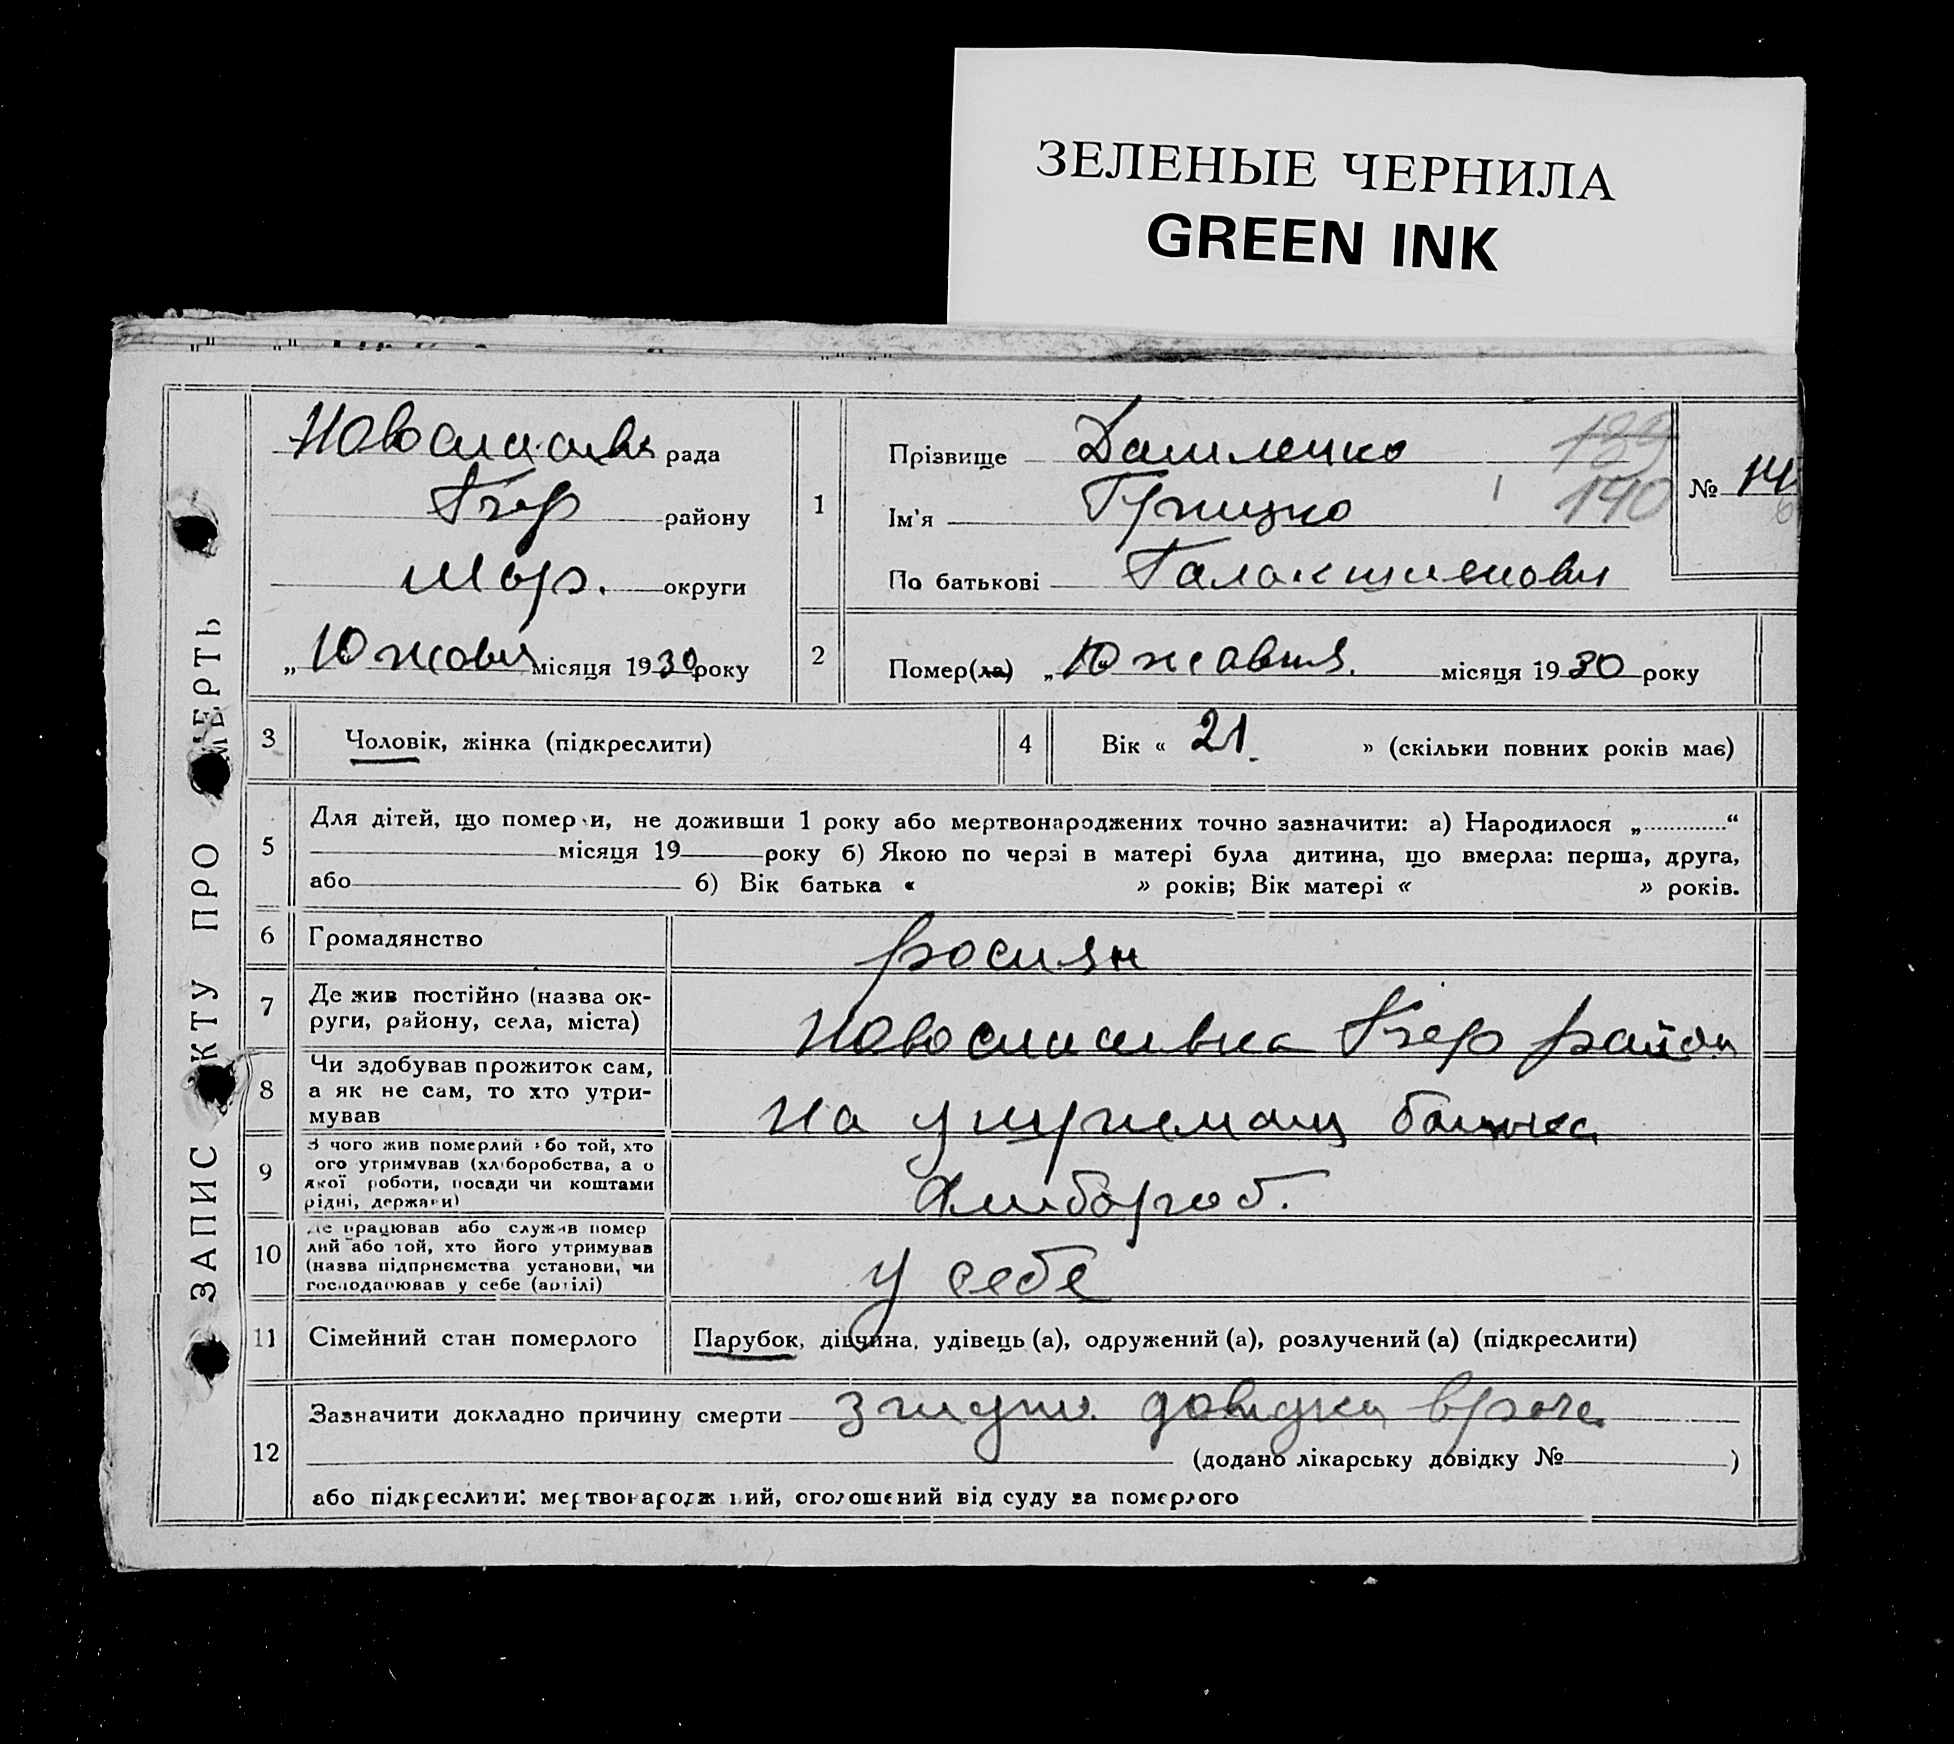 ЗЕЛЕНЫЕ ЧЕРНИЛА
GREEN INK
ЗАПИС АКТУ ПРО СМЕРТЬ
рада
району
округи
„10 жовтня місяця 1930 року
1
Прізвище Даниленко
139
Ім’я Грицко
140
По батькові Галактионович
№ 14
2
Помер(ла) „10 жовтня. місяця 1930 року
3 Чоловік, жінка (підкреслити)
4 Вік « 21. » (скільки повних років має)
5
Для дітей, що померли, не доживши 1 року або мертвонароджених точно зазначити: а) Народилося „ “
місяця 19 року б) Якою по черзі в матері була дитина, що вмерла: перша, друга,
або б) Вік батька « » років; Вік матері « » років.
6 Громадянство росиян
7 Де жив постійно (назва ок-
руги, району, села, міста)
Новоспасівка район
8 Чи здобував прожиток сам,
а як не сам, то хто утри-
мував
на утриманщ батька
9 З чого жив померлий або той, хто
його утримував (хліборобства, а о
якої роботи, посади чи коштами
рідні, держави)
Хлибороб.
10 Де працював або служив помер
лий або той, хто його утримував
(назва підприємства установи, чи
господарював у себе (артілі)
у себе
11 Сімейний стан померлого Парубок, дівчина, удівець (а), одружений (а), розлучений (а) (підкреслити)
12
Зазначити докладно причину смерти згидно довидки врача
(додано лікарську довідку № )
або підкреслити: мертвонароджений, оголошений від суду за померлого